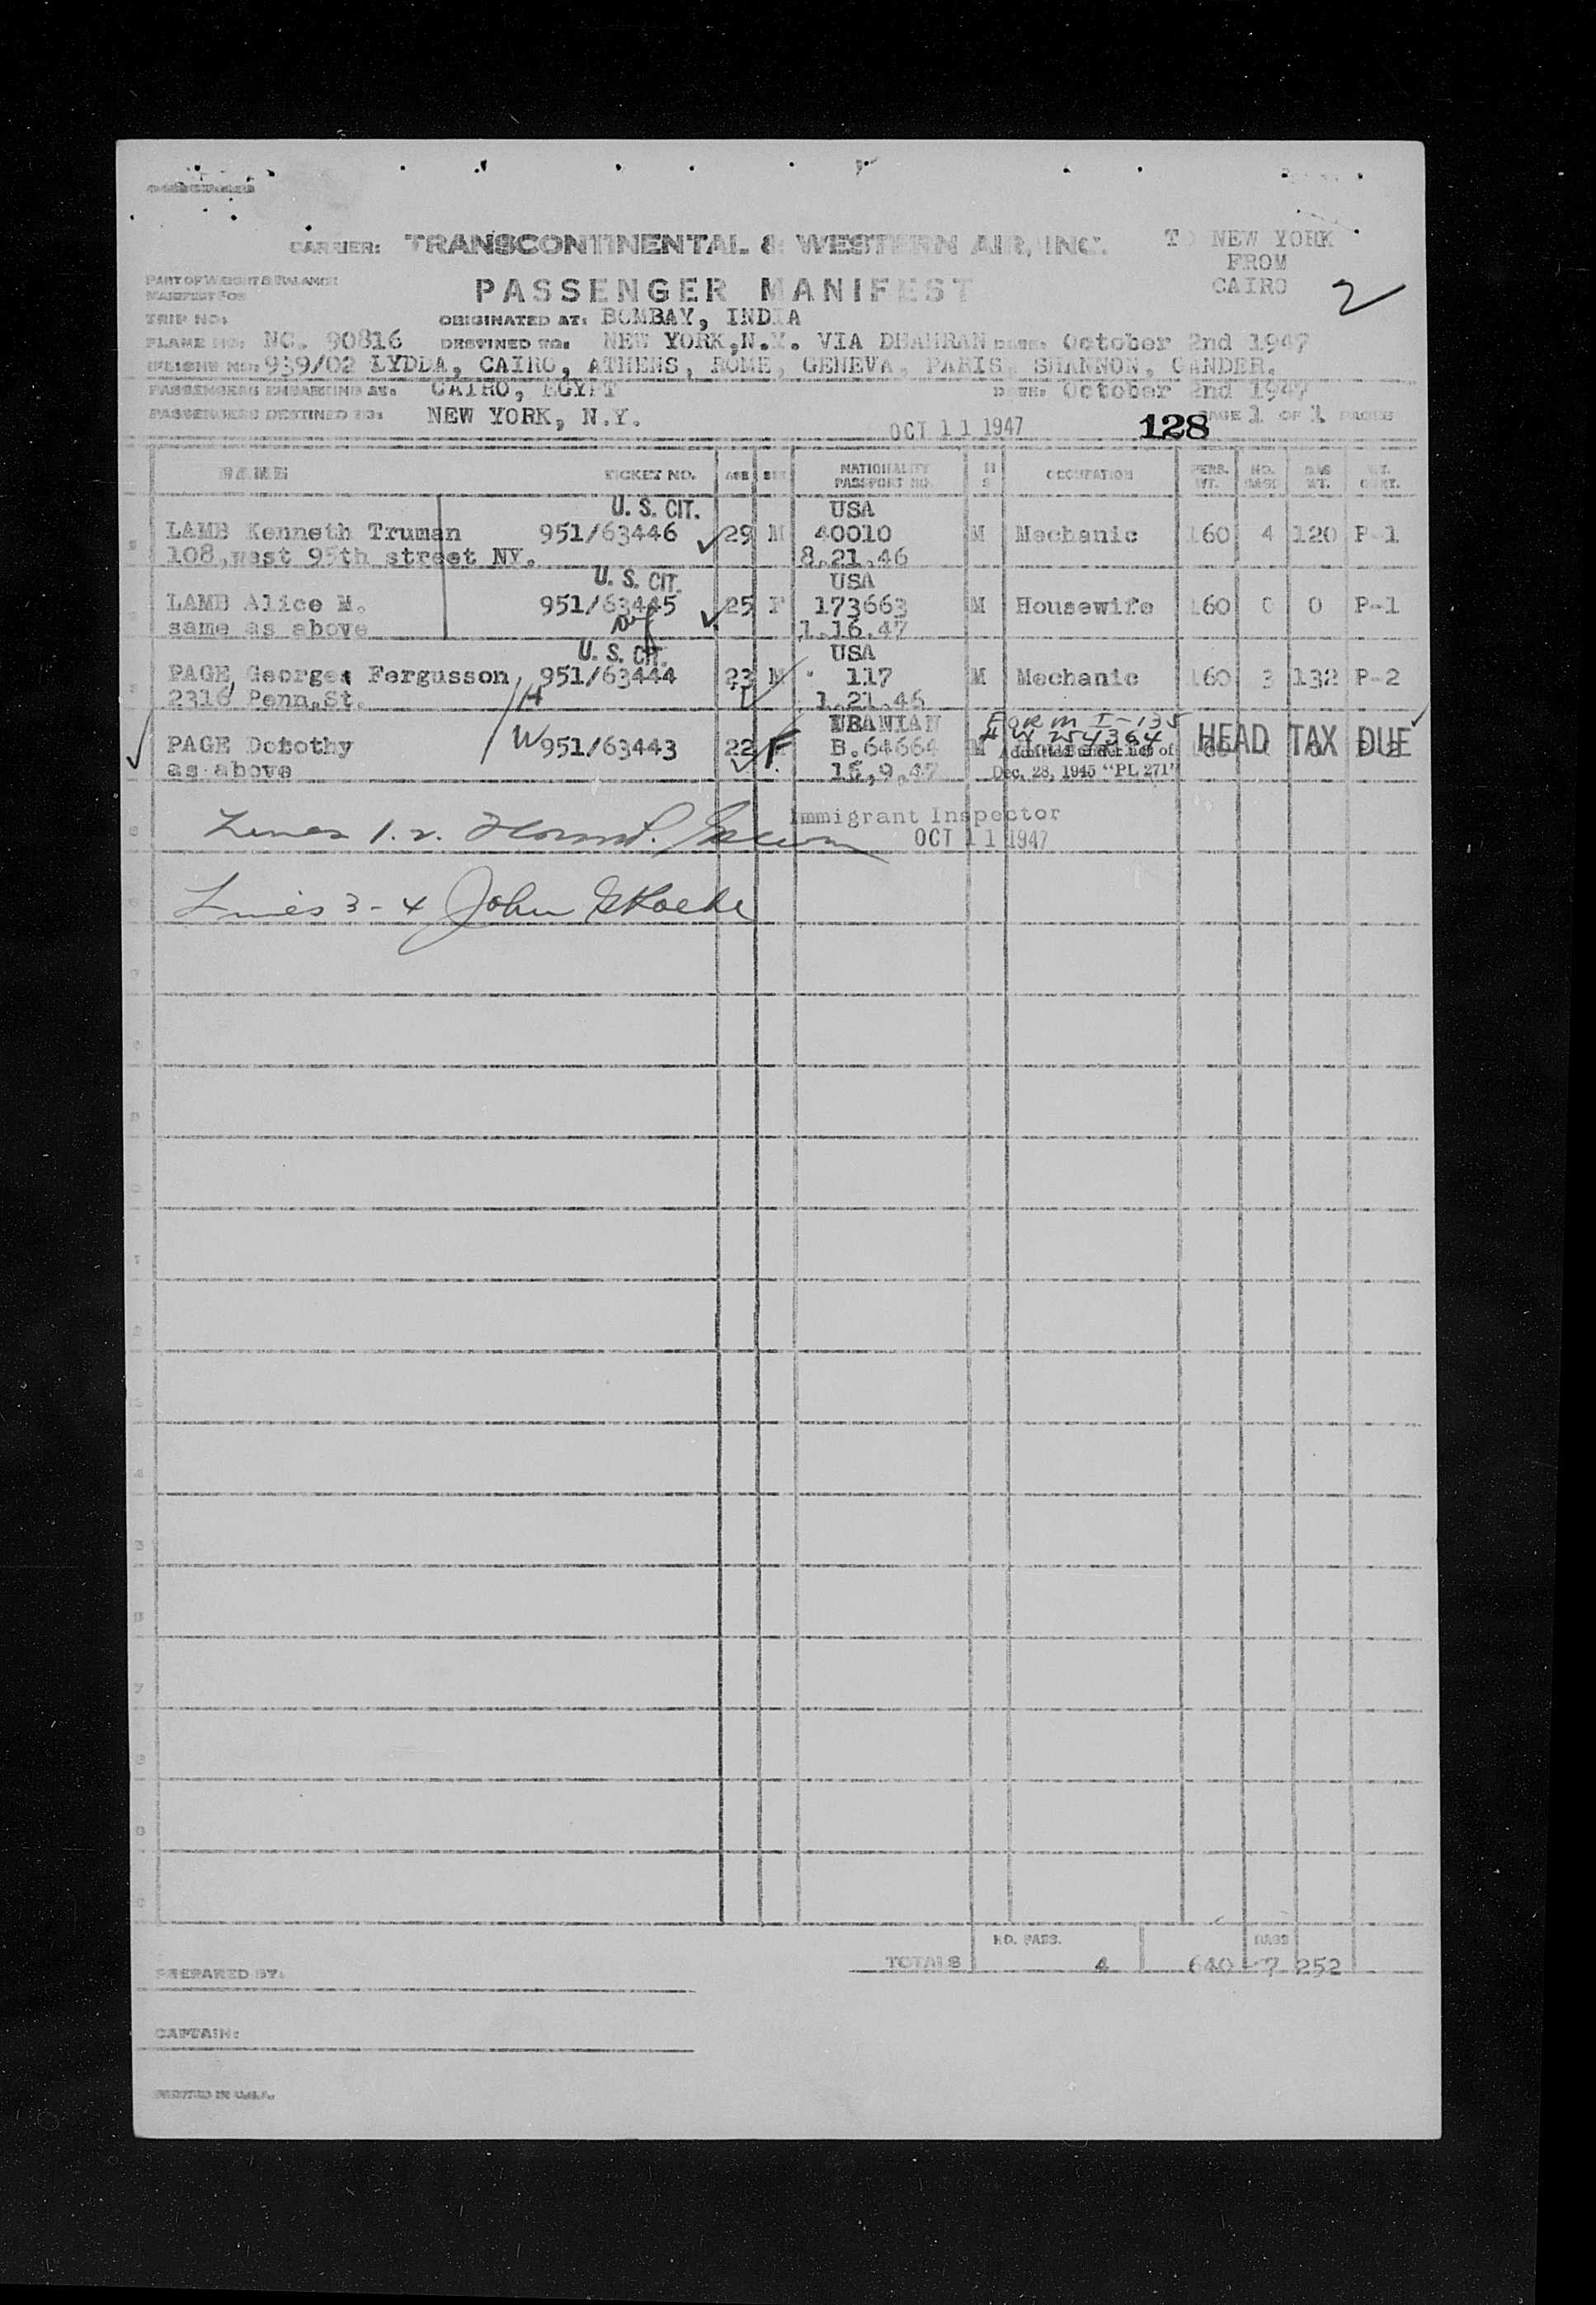 CARRIER: TRANSCONTINENTAL & WESTERN AIR, INC.
TO NEW YORK
FROM
CAIRO
2
PART OF WEIGHT & BALANCE
MANIFEST FOR
PASSENGER MANIFEST
TRIP NO: ORIGINATED AT: BOMBAY, INDIA
PLANE NO: NC. 90816 DESTINED TO: NEW YORK,N.Y. VIA DHAHRAN DATE: October 2nd 1947
939/02 LYDDA, CAIRO, ATHENS, ROME, GENEVA, PARIS, SHANNON, GANDER.
PASSENGERS EMBARKING AT: CAIRO, EGYPT DATE: October 2nd 1947
PASSENGERS DESTINED TO: NEW YORK, N.Y. PAGE 1 OF 1 PAGES
OCT 11 1947 128
NAME TICKET NO. AGE SEX NATIONALITY PASSPORT NO. M S OCCUPATION PERS. WT. NO. BAGS BAG WT. WT. CERT.
U. S. CIT. USA
LAMB Kenneth Truman 951/63446 29 M 40010 M Mechanic 160 4 120 P-1
108,west 95th street NY. 8.21.46
U. S. CIT. USA
LAMB Alice M. 951/63445 25 F 173663 M Housewife 160 0 0 P-1
same as above 1.16.47
U. S. CIT. USA
PAGE Georges Fergusson 951/63444 23 M 117 M Mechanic 160 3 132 P-2
2316 Penn.St. H 1.21.46
FORM I-135
PAGE Dorothy W 951/63443 22 F B.64664 M HEAD TAX DUE
as above 15,9.47 Dec. 28, 1945 "PL 271"
Immigrant Inspector
Lines 1. 2.
OCT 11 1947
Lines 3-4 John
NO. PASS. BAGS
TOTALS 4 640 7 252
PREPARED BY:
CAPTAIN:
PRINTED IN U.S.A.